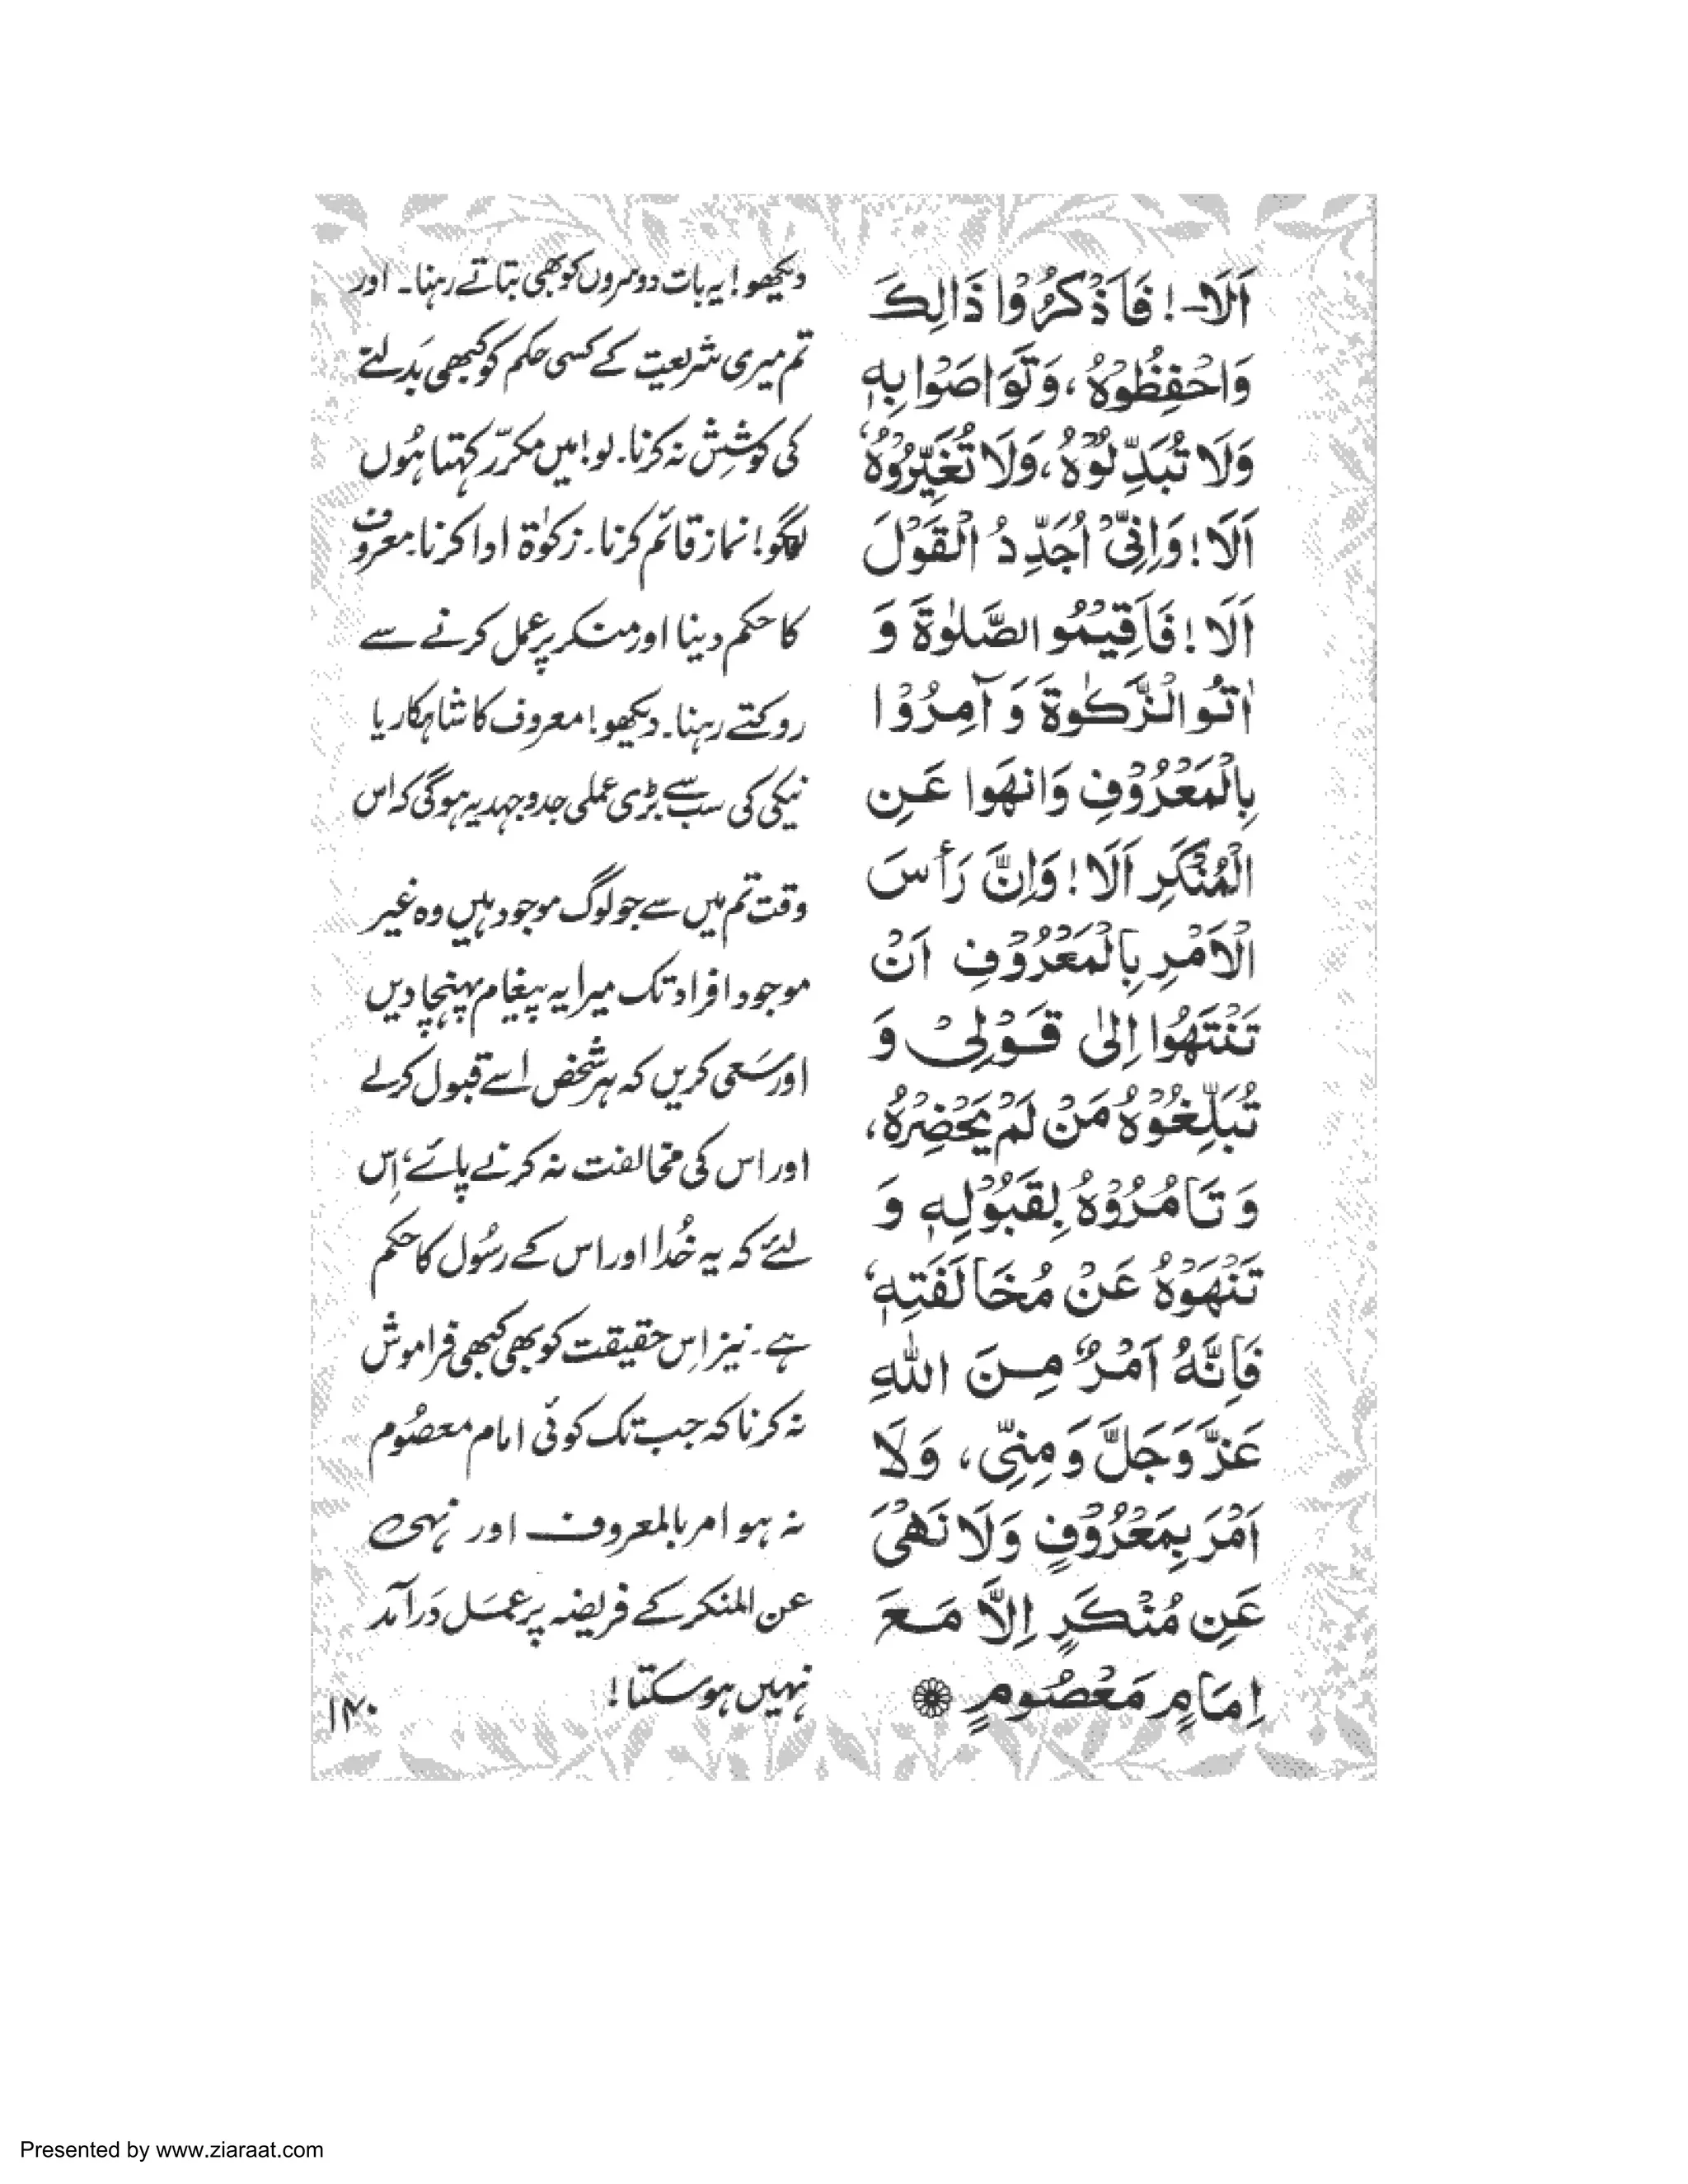 اَلَا-! فَاَذْكُرُوْا ذَالِكَ
وَاحْفِظُوْهُ، وَتَوَاصَوْا بِهٖ
وَلَا تُبَدِّلُوْهُ، وَلَا تُغَيِّرُوْهُ،
اَلَا! وَاِنِّىْ اُجَدِّدُ الْقَوْلَ
اَلَا! فَاَقِيْمُو الصَّلٰوةَ وَ
اٰتُو الْزَّكٰوةَ وَ آمِرُوْا
بِالْمَعْرُوْفِ وَانْهَوا عَنِ
الْمُنْكَرِ اَلَا! وَاِنَّ رَأْسَ
الْاَمْرِ بِالْمَعْرُوْفِ اَنْ
تَنْتَهُوا اِلىٰ قَوْلِىْ وَ
تُبَلِّغُوْهُ مَنْ لَمْ يَحْضِرْهُ،
وَ تَامُرُوْهُ بِقَبُوْلِهٖ وَ
تَنْهَوْهُ عَنْ مُخَالَفَتِهٖ،
فَاِنَّهُ اَمْرٌ مِنَ اللهِ
عَزَّ وَجَلَّ وَ مِنِّى، وَلَا
اَمْرَ بِمَعْرُوْفٍ وَلَا نَهْىَ
عَنِ مُنْكَرٍ اِلَّا مَعَ
اِمَامٍ مَعْصُومٍ
دیکھو! یہ بات دوسروں کو بھی بتاتے رہنا۔ اور
تم میری شریعت کے کسی حکم کو کبھی بَدلنے
کی کوشِش نہ کرنا۔ لو! میں مکرّر کہتا ہُوں
لوگو! نماز قائم کرنا۔ زکوٰۃ ادا کرنا۔ معروف
کا حکم دینا اور منکر پر عمل کرنے سے
روکتے رہنا۔ دیکھو! معروف کا شاہکار یا
نیکی کی سب سے بڑی عملی جدوجہد یہ ہوگی کہ اس
وقت تم میں سے جو لوگ موجود ہیں وہ غیر
موجود افراد تک میرا یہ پیغام پہنچا دیں
اور سَعی کریں کہ ہر شخص اسے قبول کرلے
اور اس کی مخالفت نہ کرنے پائے، اِس
لئے کہ یہ خُدا اور اس کے رسُول کا حکم
ہے۔ نیز اِس حقیقت کو بھی کبھی فراموش
نہ کرنا کہ جب تک کوئی امام معصُوم
نہ ہو امر بالمعروف اور نہی
عن المنکر کے فریضہ پر عمَل دَرآمد
نہیں ہو سکتا!
۱۴۰
Presented by www.ziaraat.com